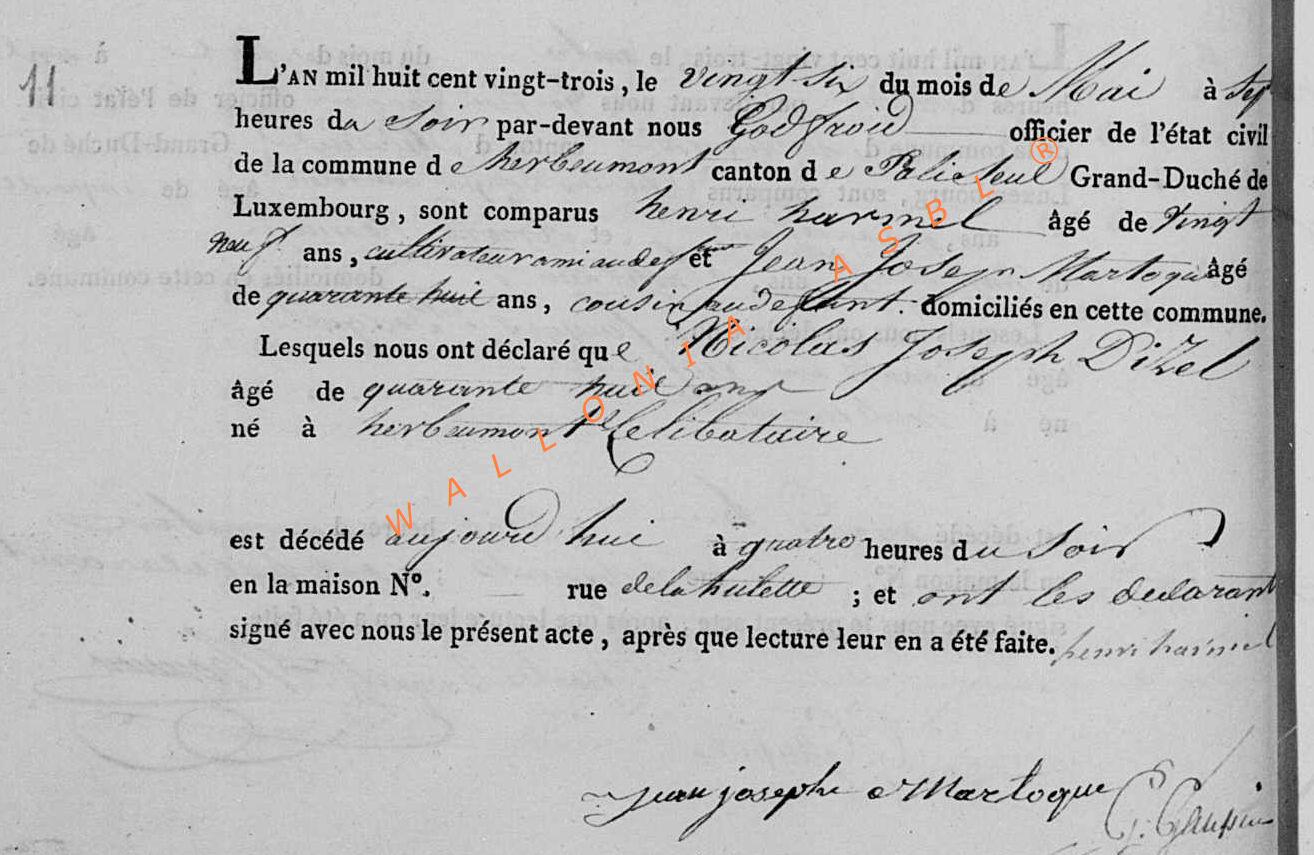 11
L'AN mil huit cent vingt-trois, le vingt six du mois de Mai à sept
heures da Soir par-devant nous Godfroid officier de l'état civil
de la commune d e herbeumont canton d e Paliseul Grand-Duché de
Luxembourg, sont comparus henri harmel âgé de vingt
neuf ans, cultivateur ami au def et Jean Joseph Martoque âgé
de quarante huit ans, cousin au defunt. domiciliés en cette commune.
Lesquels nous ont déclaré que Nicolas Joseph Dizel
âgé de quarante huit ans
né à herbeumont Celibataire
est décédé aujourd hui à quatre heures du Soir
en la maison N°. rue de la hulette ; et ont les declarant
signé avec nous le présent acte, après que lecture leur en a été faite. henri harmel
jean josephe Martoque
WALLONIA ASBL ®